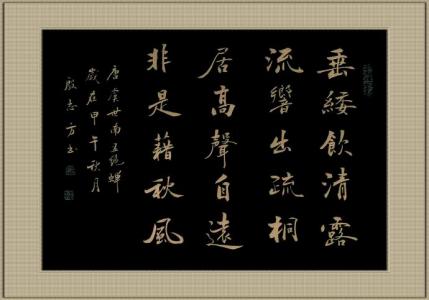 垂緌飲清露
流響出疏桐
居高聲自遠
非是藉秋風
唐虞世南五絕蟬
歲在甲午秋月
殷志方书